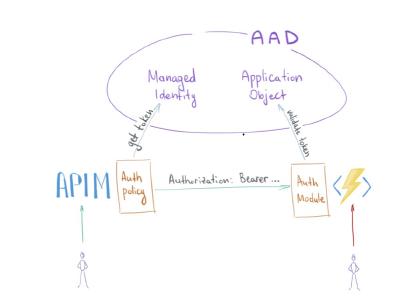 AAD
Managed
Identity
Application
Object
get token
validate token
APIM
Auth
policy
Authorization: Bearer...
Auth
Module